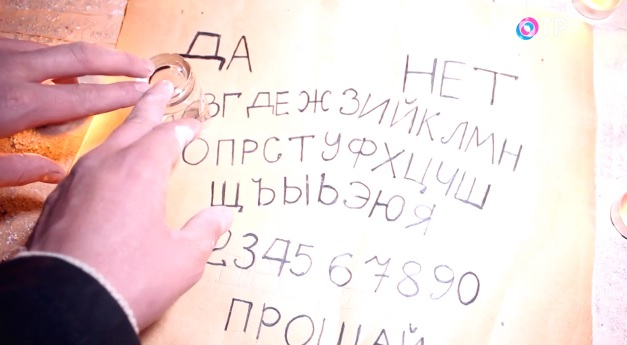 ДА НЕТ
ЗГДЕЖЗИЙКЛМН
ОПРСТУФХЦЧШ
ЩЪЫЬЭЮЯ
234567890
ПРОЩАЙ
ОТР